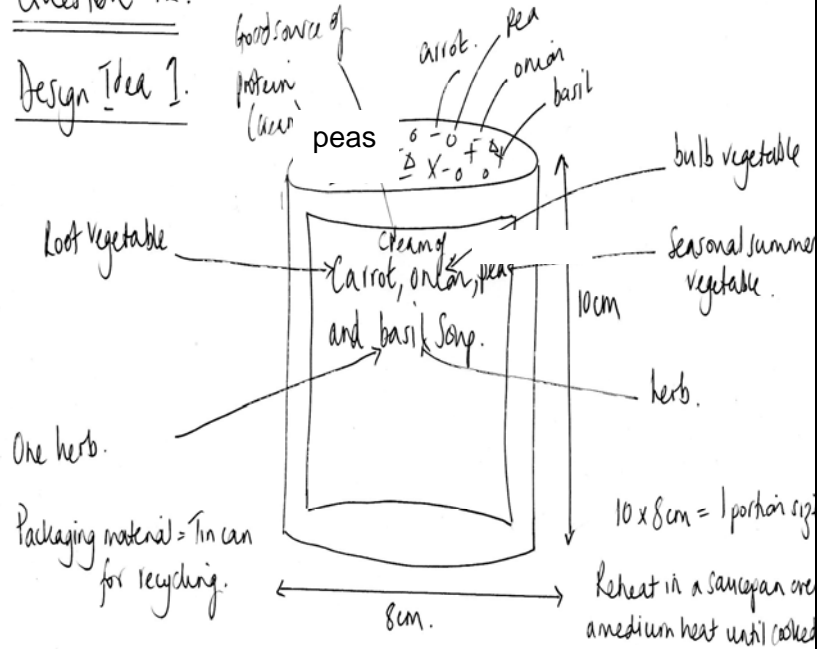 Design Idea 1.
Good source of
protein
peas
carrot.
pea
onion
basil
bulb vegetable
Root vegetable
Cream of
Carrot, onion, peas
and basil Soup.
Seasonal summer
vegetable.
10cm
herb.
One herb.
Packaging material = Tin can
for recycling.
8cm.
10 x 8cm = 1 portion
Reheat in a saucepan
a medium heat until cooked